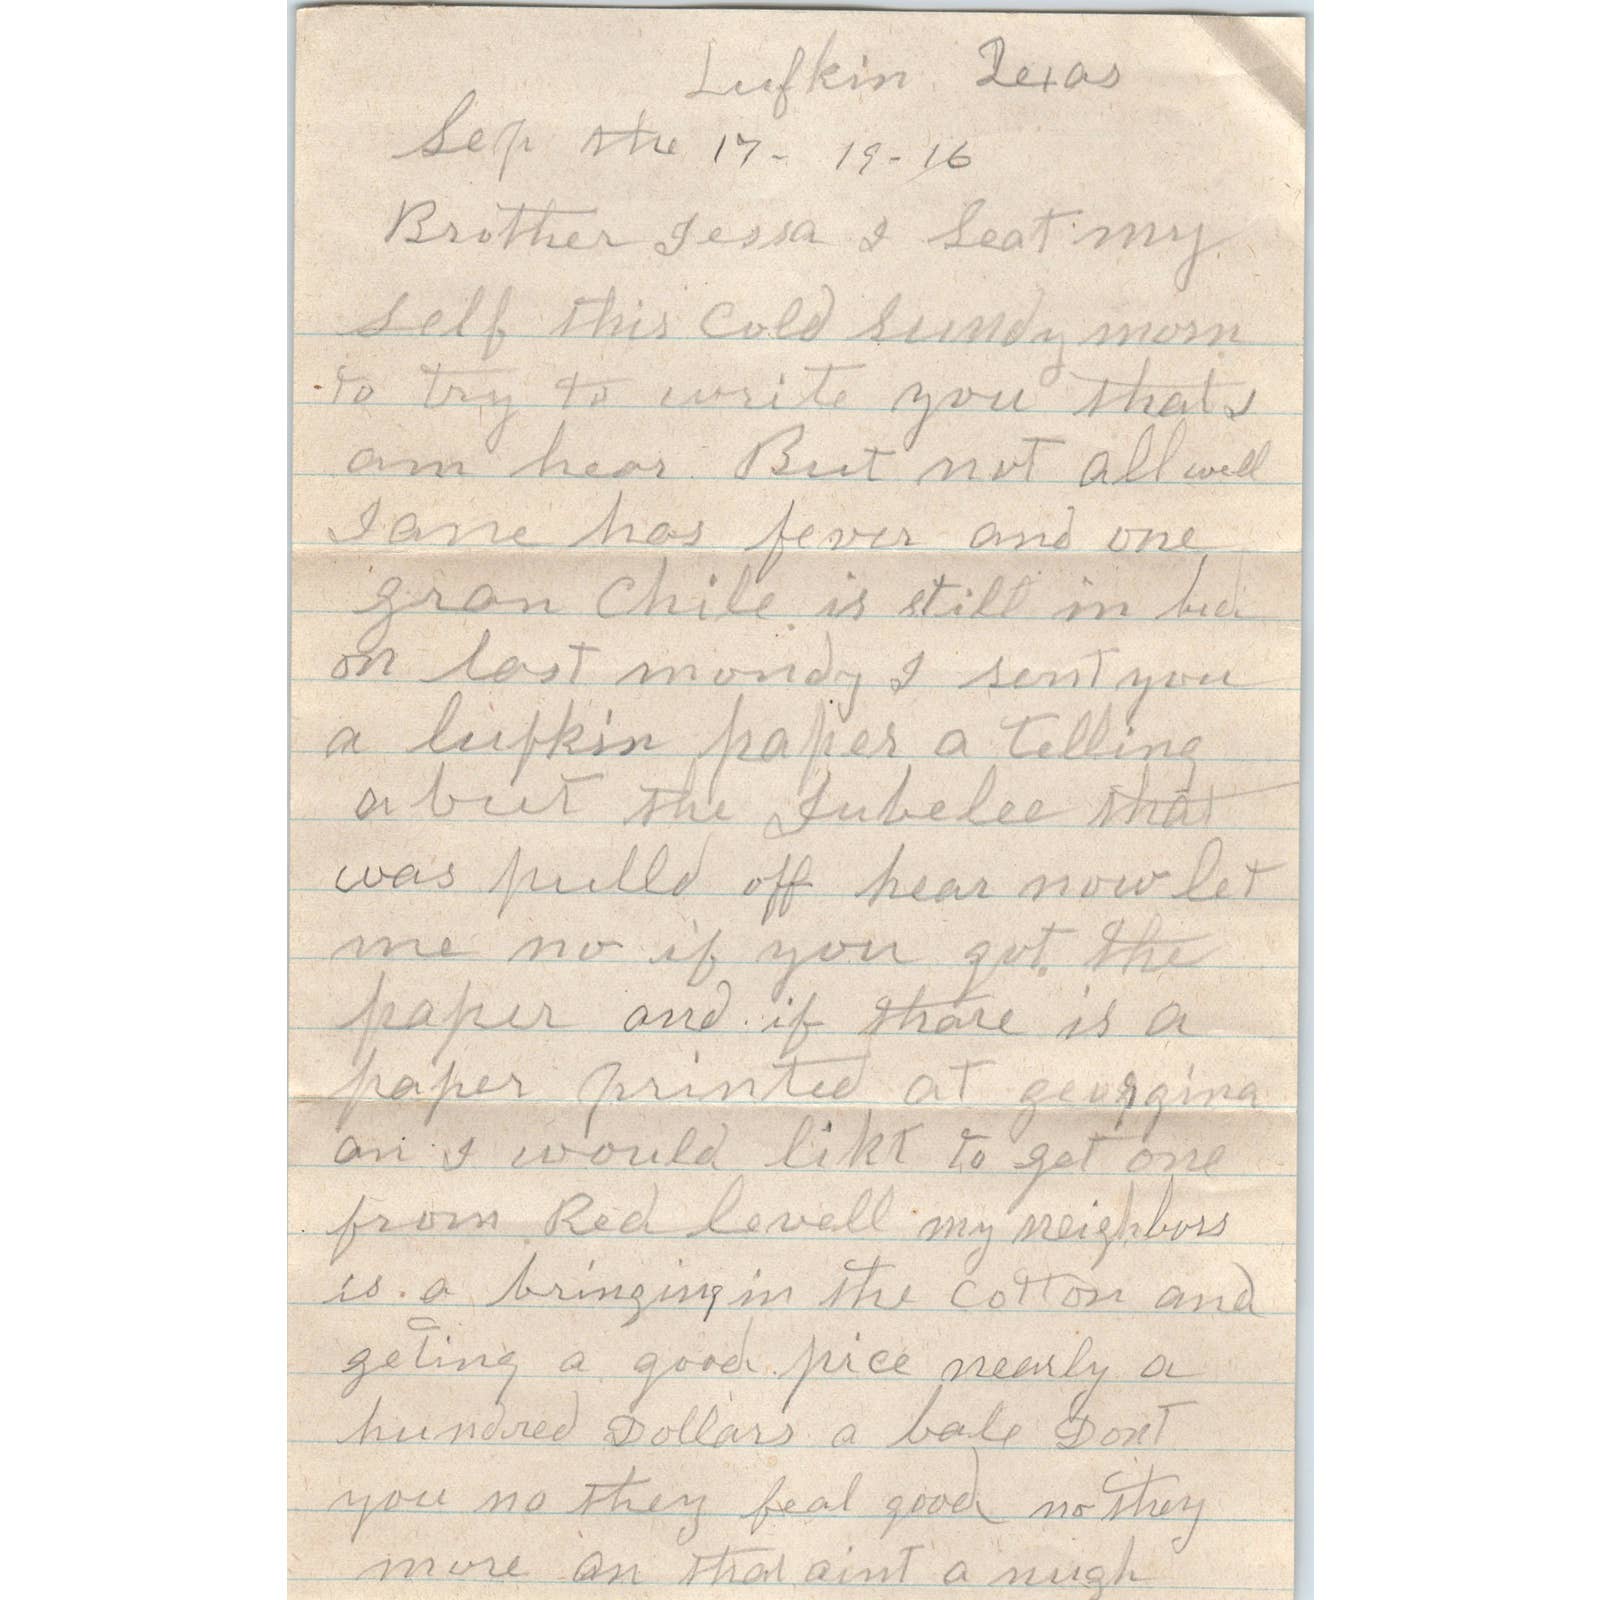 Lufkin Texas
Sep the 17- 19-16
Brother Jessa I Seat my
self this Cold Sundy morn
to try to write you that I
am hear But not all well
Jane has fever and one
gran Chile is still in bed
on last mondy I sent you
a lufkin paper a telling
a but the Jubelee that
was pulld off hear now let
me no if you got the
paper and if thare is a
paper printed at georgina
an I would likt to get one
from Red levell my neighbors
is a bringing in the cotton and
geting a good price nearly a
hundred Dollars a bale Dont
you no they feal good no they
more an that aint a nugh